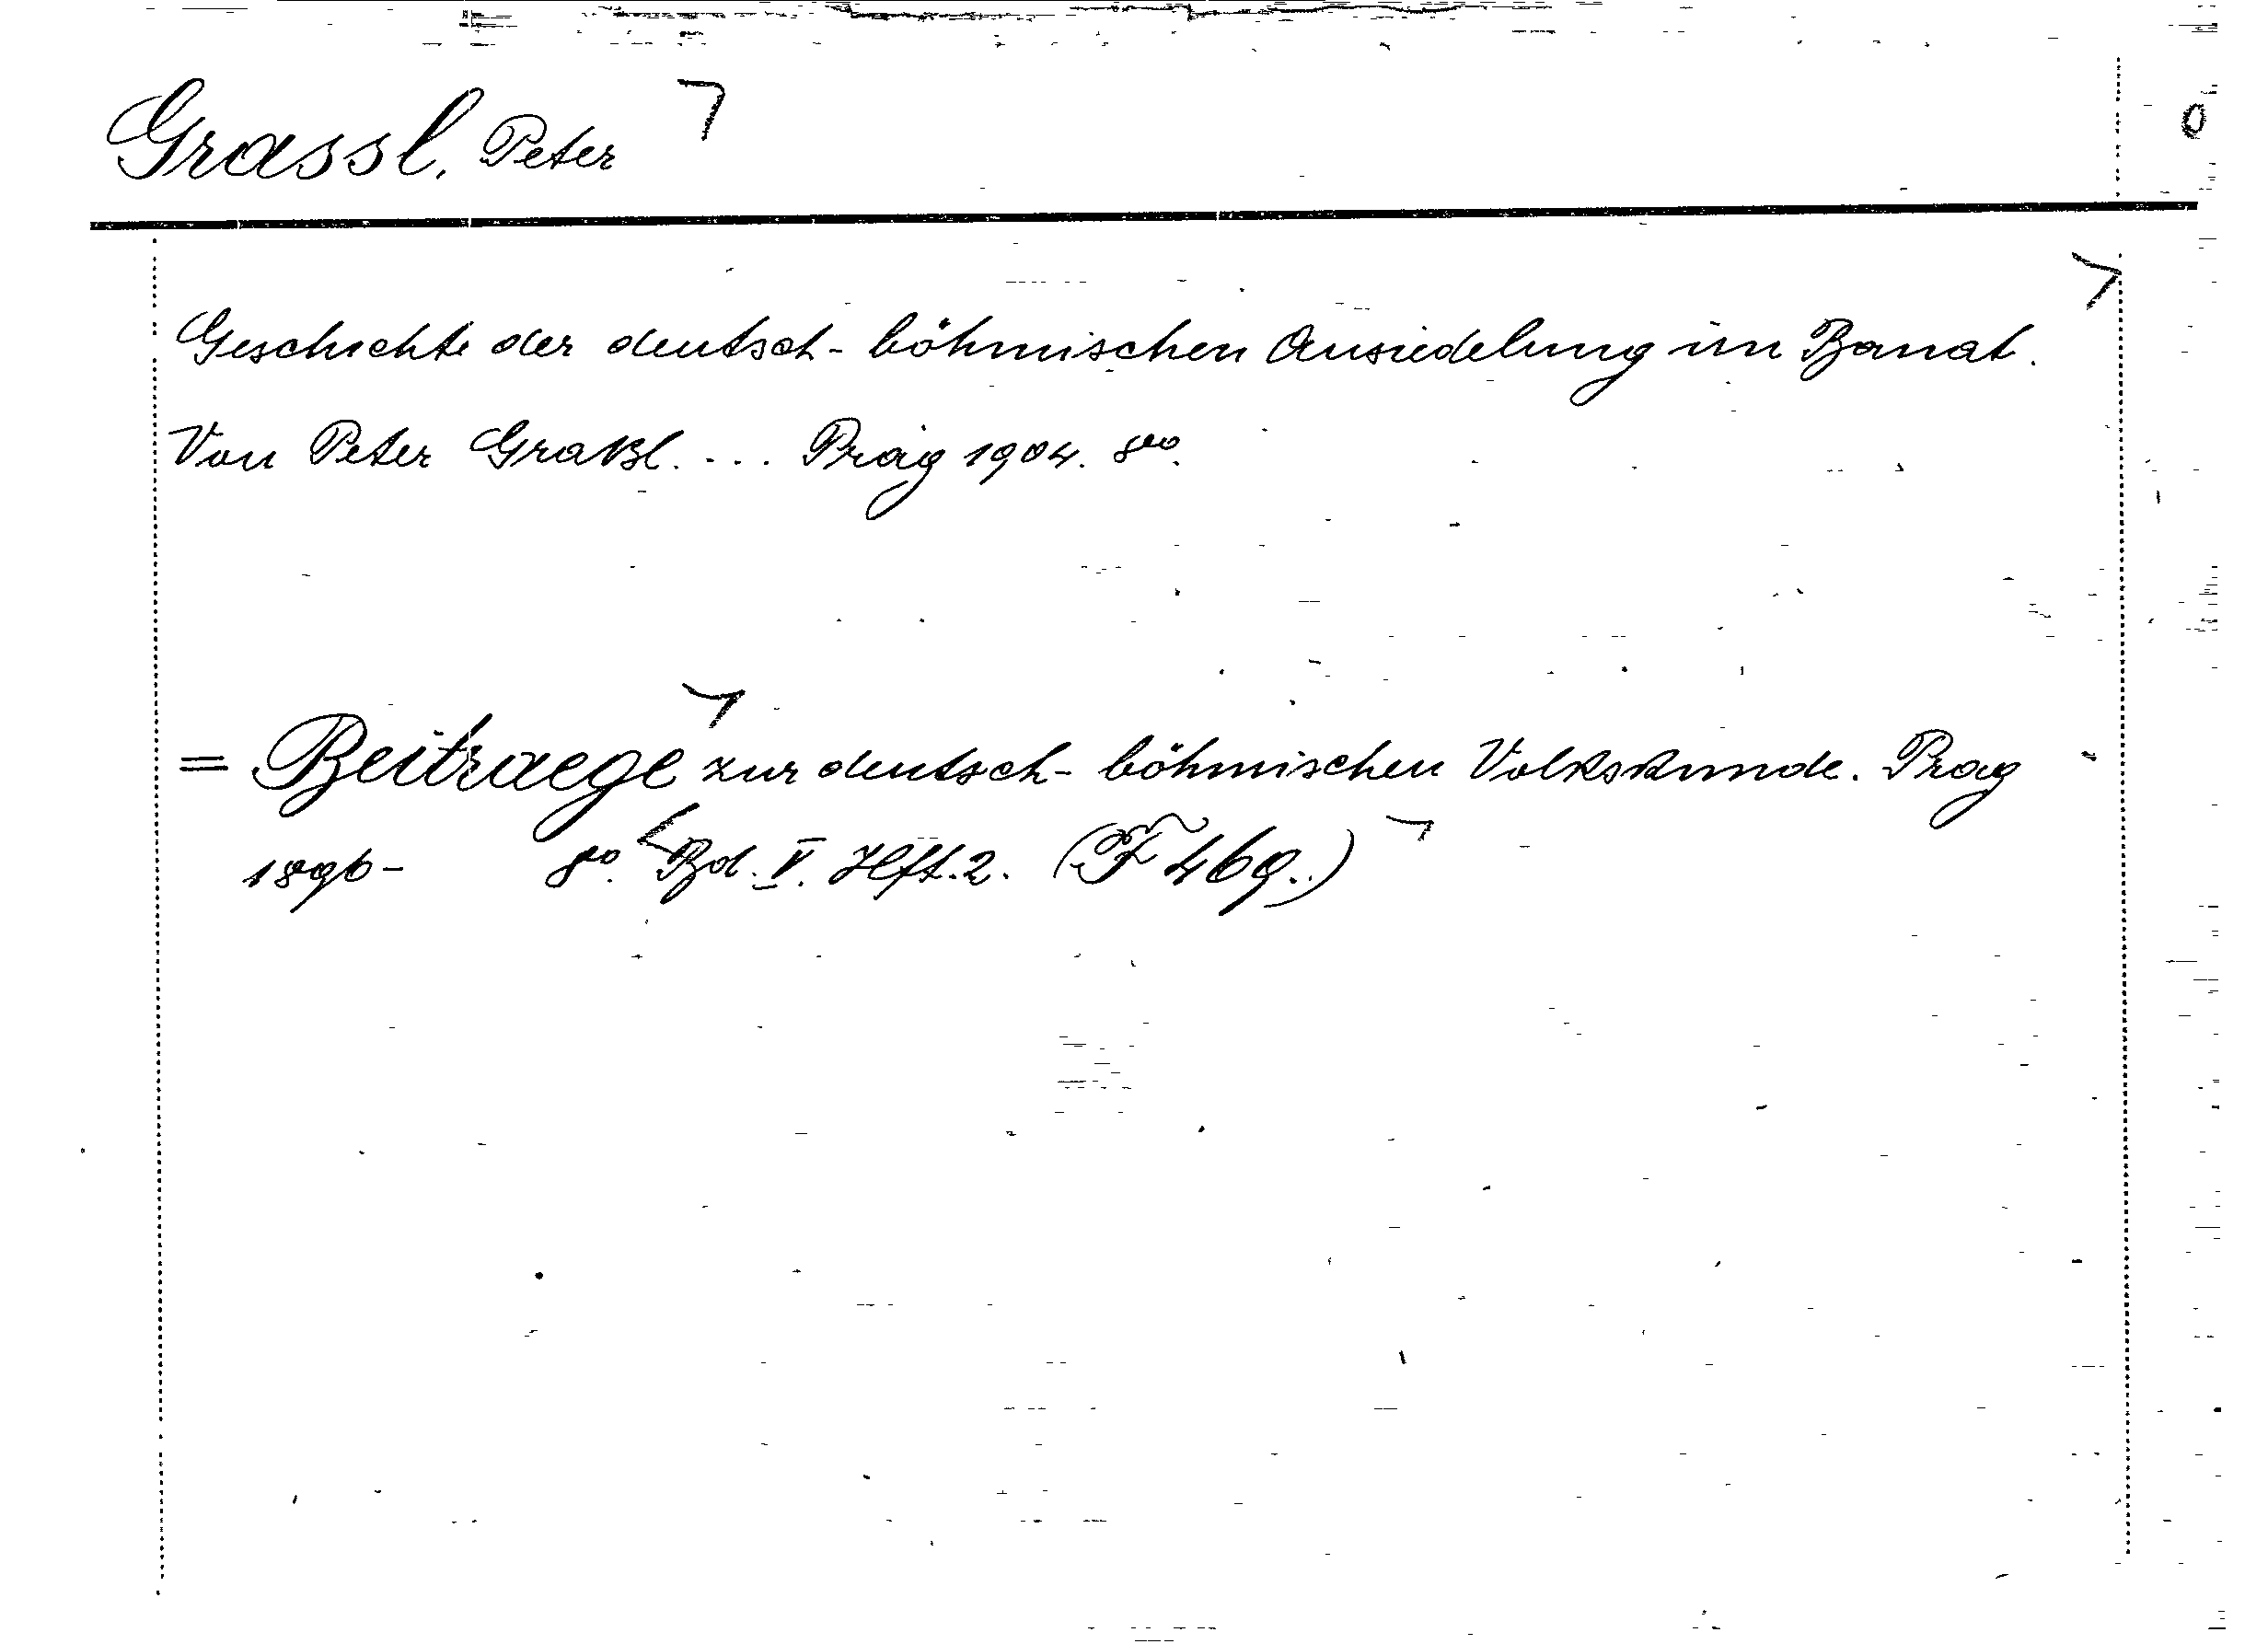 Grassl, Peter
0
Geschichte der deutsch-böhmischen Ansiedelung im Banat.
Von Peter Graßl. ... Prag 1904. 8vo.
= Beitraege zur deutsch-böhmischen Volkskunde. Prag
1896- 8vo. Bd. V. Hft. 2. (F 469..)